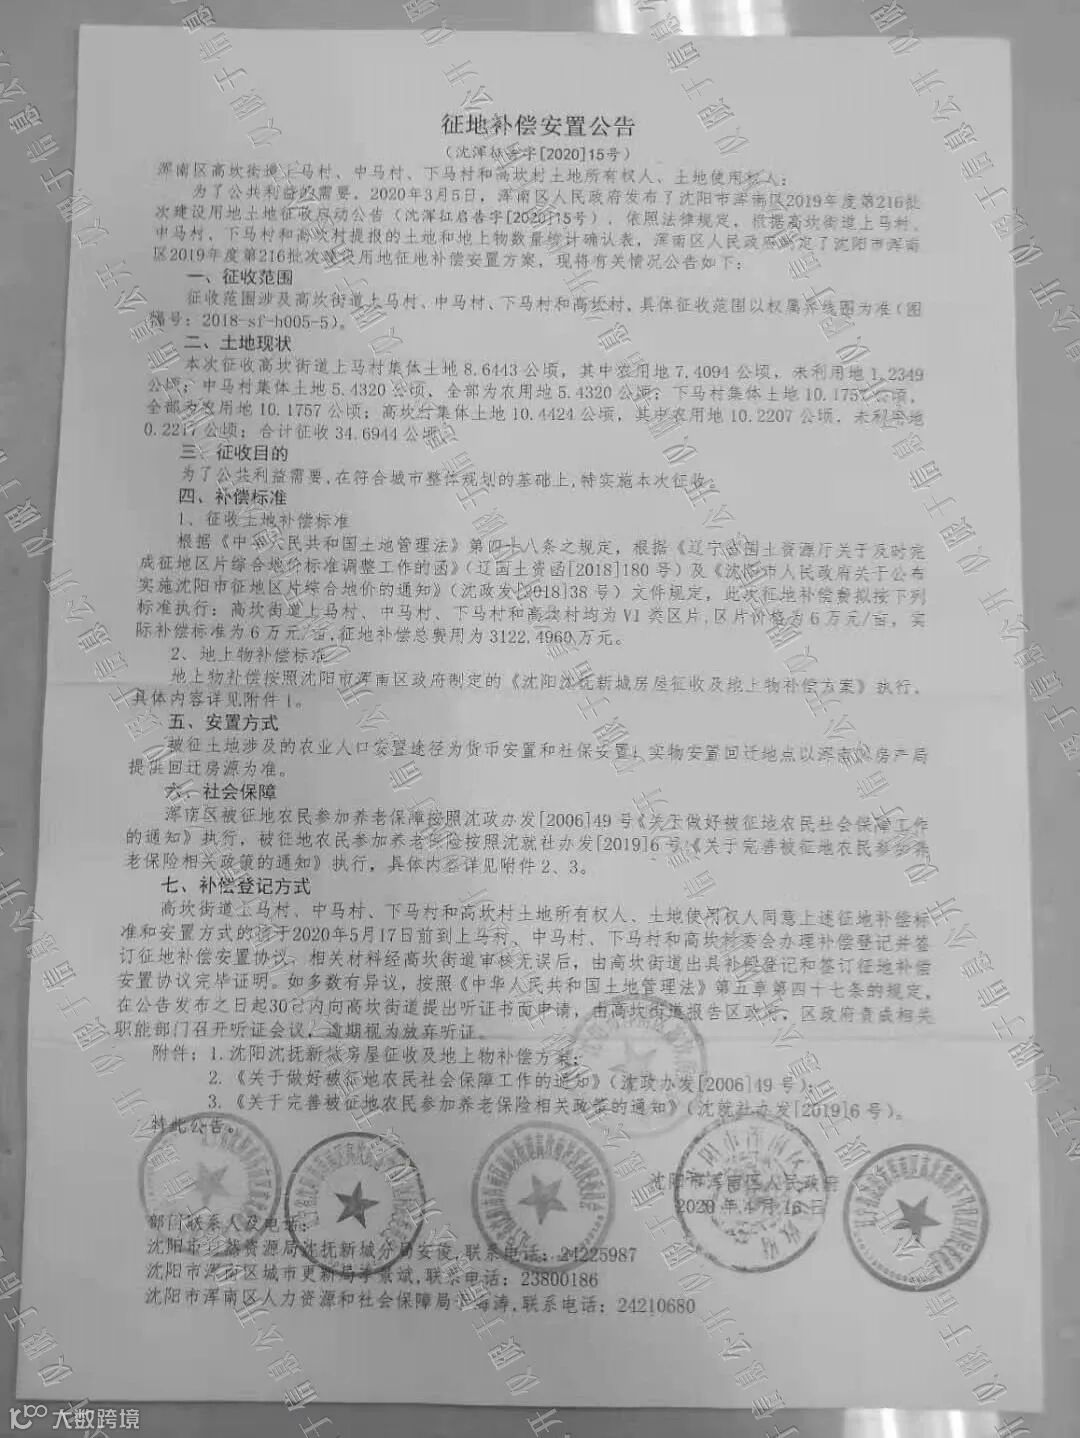 征地补偿安置公告
（沈浑征告字[2020]15号）
浑南区高坎街道上马村、中马村、下马村和高坎村土地所有权人、土地使用权人：
为了公共利益的需要。2020年3月5日，浑南区人民政府发布了沈阳市浑南区2019年度第216批
次建设用地土地征收启动公告（沈浑征启告字[2020]15号）。依照法律规定，根据高坎街道上马村、
中马村、下马村和高坎村提报的土地和地上物数量统计确认表，浑南区人民政府制定了沈阳市浑南
区2019年度第216批次建设用地征地补偿安置方案，现将有关情况公告如下：
一、征收范围
征收范围涉及高坎街道上马村、中马村、下马村和高坎村，具体征收范围以权属界线图为准（图
幅号：2018-sf-h005-5）。
二、土地现状
本次征收高坎街道上马村集体土地8.6443公顷，其中农用地7.4094公顷，未利用地1.2349
公顷；中马村集体土地5.4320公顷，全部为农用地5.4320公顷；下马村集体土地10.1757公顷，
全部为农用地10.1757公顷；高坎村集体土地10.4424公顷，其中农用地10.2207公顷，未利用地
0.2217公顷；合计征收34.6944公顷。
三、征收目的
为了公共利益需要，在符合城市整体规划的基础上，特实施本次征收。
四、补偿标准
1、征收土地补偿标准
根据《中华人民共和国土地管理法》第四十八条之规定，根据《辽宁省国土资源厅关于及时完
成征地区片综合地价标准调整工作的函》（辽国土资函[2018]180号）及《沈阳市人民政府关于公布
实施沈阳市征地区片综合地价的通知》（沈政发[2018]38号）文件规定，此次征地补偿费拟按下列
标准执行：高坎街道上马村、中马村、下马村和高坎村均为VI类区片，区片价格为6万元/亩，实
际补偿标准为6万元/亩，征地补偿总费用为3122.4960万元。
2、地上物补偿标准
地上物补偿按照沈阳市浑南区政府制定的《沈阳沈抚新城房屋征收及地上物补偿方案》执行，
具体内容详见附件1。
五、安置方式
被征土地涉及的农业人口安置途径为货币安置和社保安置，实物安置回迁地点以浑南区房产局
提供回迁房源为准。
六、社会保障
浑南区被征地农民参加养老保障按照沈政办发[2006]49号《关于做好被征地农民社会保障工作
的通知》执行，被征地农民参加养老保险按照沈就社办发[2019]6号《关于完善被征地农民参加养
老保险相关政策的通知》执行，具体内容详见附件2、3。
七、补偿登记方式
高坎街道上马村、中马村、下马村和高坎村土地所有权人、土地使用权人同意上述征地补偿标
准和安置方式的，请于2020年5月17日前到上马村、中马村、下马村和高坎村委会办理补偿登记并签
订征地补偿安置协议，相关材料经高坎街道审核无误后，由高坎街道出具补偿登记和签订征地补偿
安置协议完毕证明。如多数有异议，按照《中华人民共和国土地管理法》第五章第四十七条的规定，
在公告发布之日起30日内向高坎街道提出听证书面申请，由高坎街道报告区政府，区政府责成相关
职能部门召开听证会议，逾期视为放弃听证。
附件：1.沈阳沈抚新城房屋征收及地上物补偿方案；
2.《关于做好被征地农民社会保障工作的通知》（沈政办发[2006]49号）；
3.《关于完善被征地农民参加养老保险相关政策的通知》（沈就社办发[2019]6号）。
特此公告。
沈阳市浑南区人民政府
2020年4月16日
部门联系人及电话：
沈阳市自然资源局沈抚新城分局安俊，联系电话：24225987
沈阳市浑南区城市更新局李景斌，联系电话：23800186
沈阳市浑南区人力资源和社会保障局 海涛，联系电话：24210680
仅限于信息公开
大数跨境